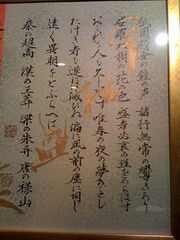 祇園精舎の鐘の声 諸行無常の響きあり
娑羅双樹の花の色 盛者必衰の理をあらはす
おごれる人も久しからず 唯春の夜の夢のごとし
たけき者も遂には滅びぬ 偏に風の前の塵に同じ
遠く異朝をとぶらへば
秦の趙高 漢の王莽 梁の朱异 唐の禄山